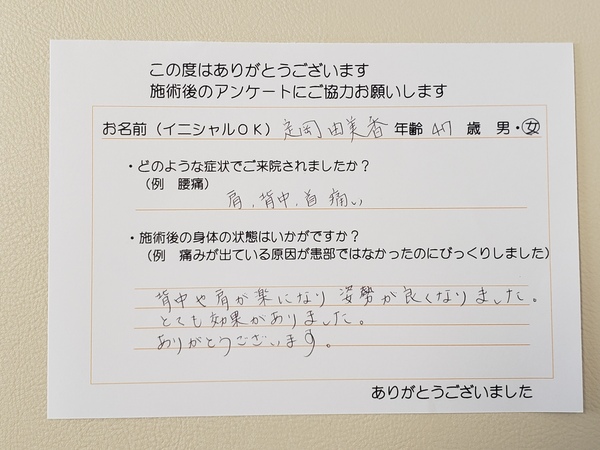 この度はありがとうございます
施術後のアンケートにご協力お願いします
お名前（イニシャルOK） 定岡 由美香 年齢 47 歳 男・女
・どのような症状でご来院されましたか？
（例 腰痛）
肩、背中、首 痛い
・施術後の身体の状態はいかがですか？
（例 痛みが出ている原因が患部ではなかったのにびっくりしました）
背中や肩が楽になり 姿勢が良くなりました。
とても効果がありました。
ありがとうございます。
ありがとうございました